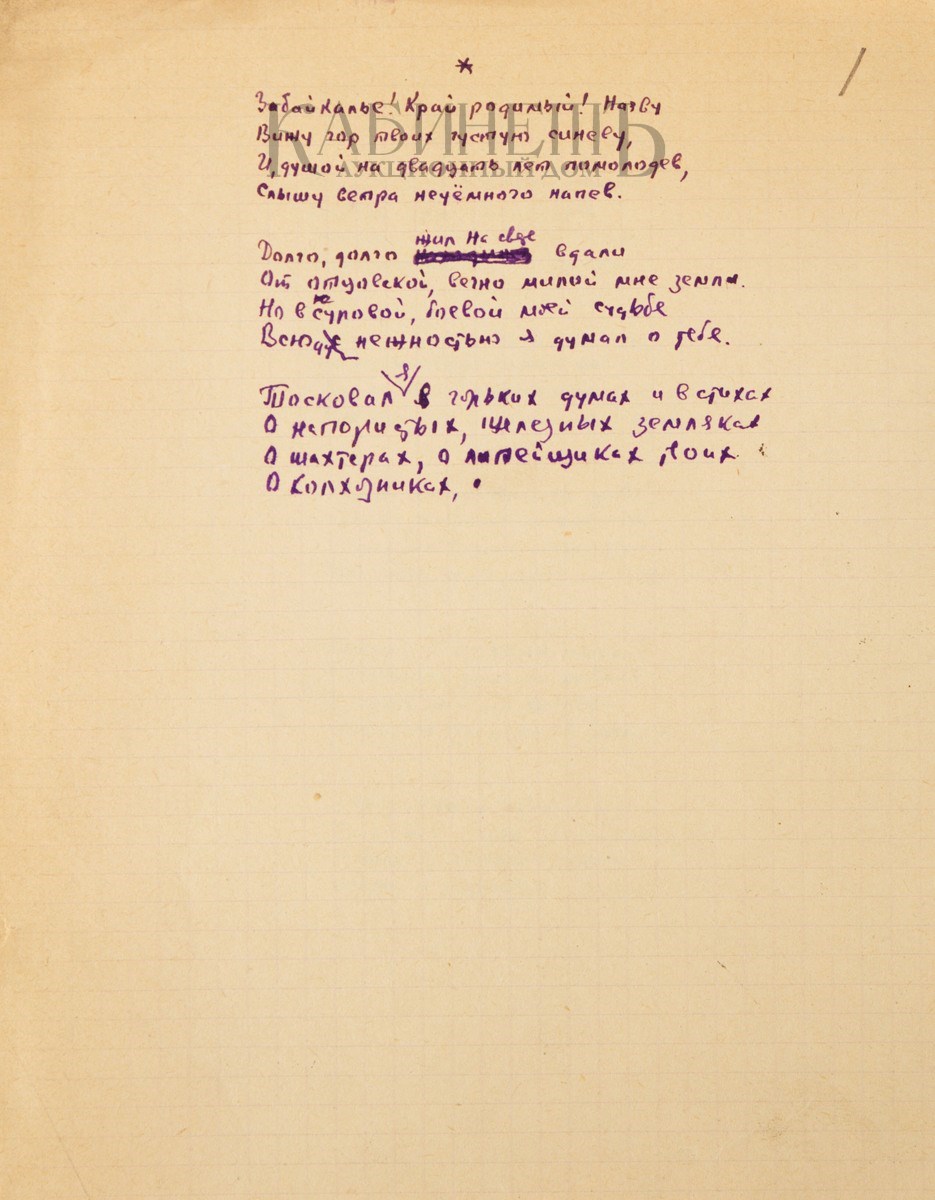 *
/
Забайкалье! Край родимый! Наяву
Вижу гор твоих густую синеву,
И, душой на двадцать лет помолодев,
Слышу ветра неуёмного напев.
жил на свете
Долго, долго вдали
От отцовской, вечно милой мне земли.
Но в суровой, боевой моей судьбе
Всюду нежностью я думал о тебе.
я
Тосковал в горьких думах и в стихах
О напористых, железных земляках
О шахтерах, о литейщиках твоих
О колхозниках,
КАБИНЕТЪ
АУКЦИОННЫЙ ДОМ